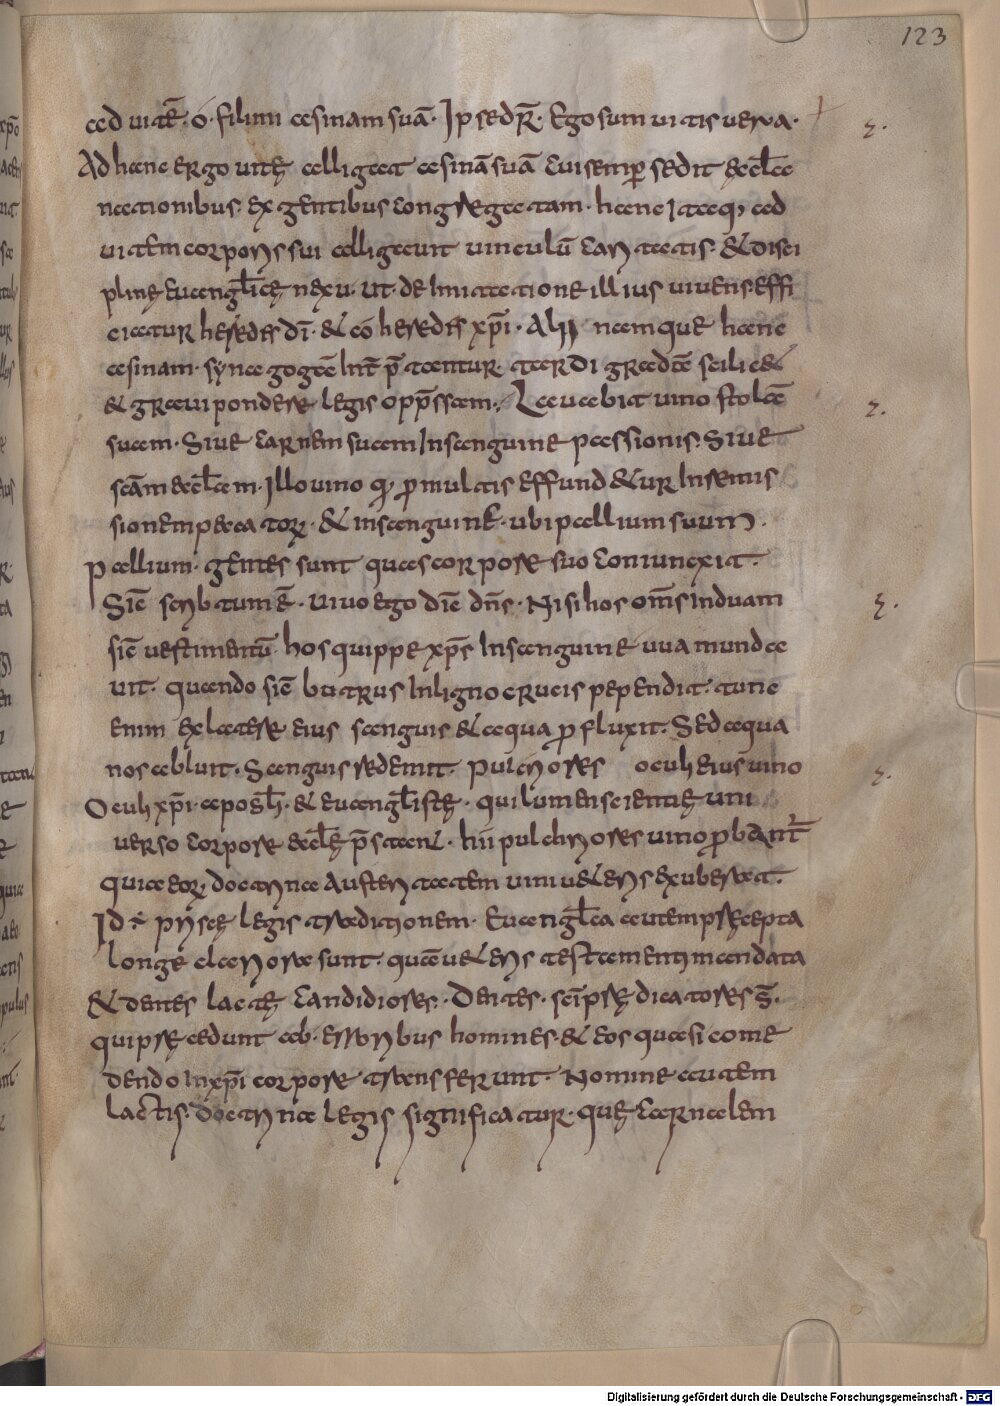 123
ad uitē· ó· filimi asinam suā· Ipse dr̄· Ego sum uitis uera·
Ad hanc ergo uitę alligat asinā suā cui semp̄ sedit aeccle
nationibus· ex gentibus congregatam· hanc Itaq; ad
uitem corporis sui alligauit uinculū caritatis· & disci
plinę euanglicę nexu· ut· de Imitatione illius uiuens effi
ciatur heredis dī· & có heredis xp̄i· Alii namque hanc
asinam· synagogā Int̄ p̄tantur· tardi gradā scilic&
& graui pondere legis opp̄ssam· Lauabit uino stolā
suam· Siue carnem suam In sanguine passionis· Siue
scām aecclam· Illo uino q; p multis effund&ur In remis
sionem peccatoꝝ· & in sanguinē· ubi pallium suum·
Pallium· gentes sunt quas corpore suo coniunexit·
Sic̄ scribtum ē· Uiuo ego dic̄ dns· Nisi hos om̄s induam
sic̄ uestimentū· hos quippe xp̄s In sanguine uua munda
uit· quando sic̄ butrus In ligno crucis pependit· tunc
enim ex latere eius sanguis & aqua p fluxit· Sed aqua
nos abluit· Sanguis redemit· Pulchriores oculi eius uino
Oculi xp̄i apostli· & euanglistę· qui lumen scientię uni
uerso corpore aecclę p̄stant· hii pulchriores uino p̄bant̄
quia eoꝝ doctrina Austeritatem uini u&eris exuberat·
Id ÷ priscę legis traditionem· Euanglica autem pręcepta
longe clariora sunt· quā u&eris testamenti mandata
& dentes lacte candidiores· Dentes· sc̄i prędicatores s̄·
qui pręcedunt ab· erroribus homines· & eos quasi come
dendo In xp̄i corpore transferunt· Nomine autem
lactis· doctrina legis significatur· quę carnalem
Digitalisierung gefördert durch die Deutsche Forschungsgemeinschaft - DFG